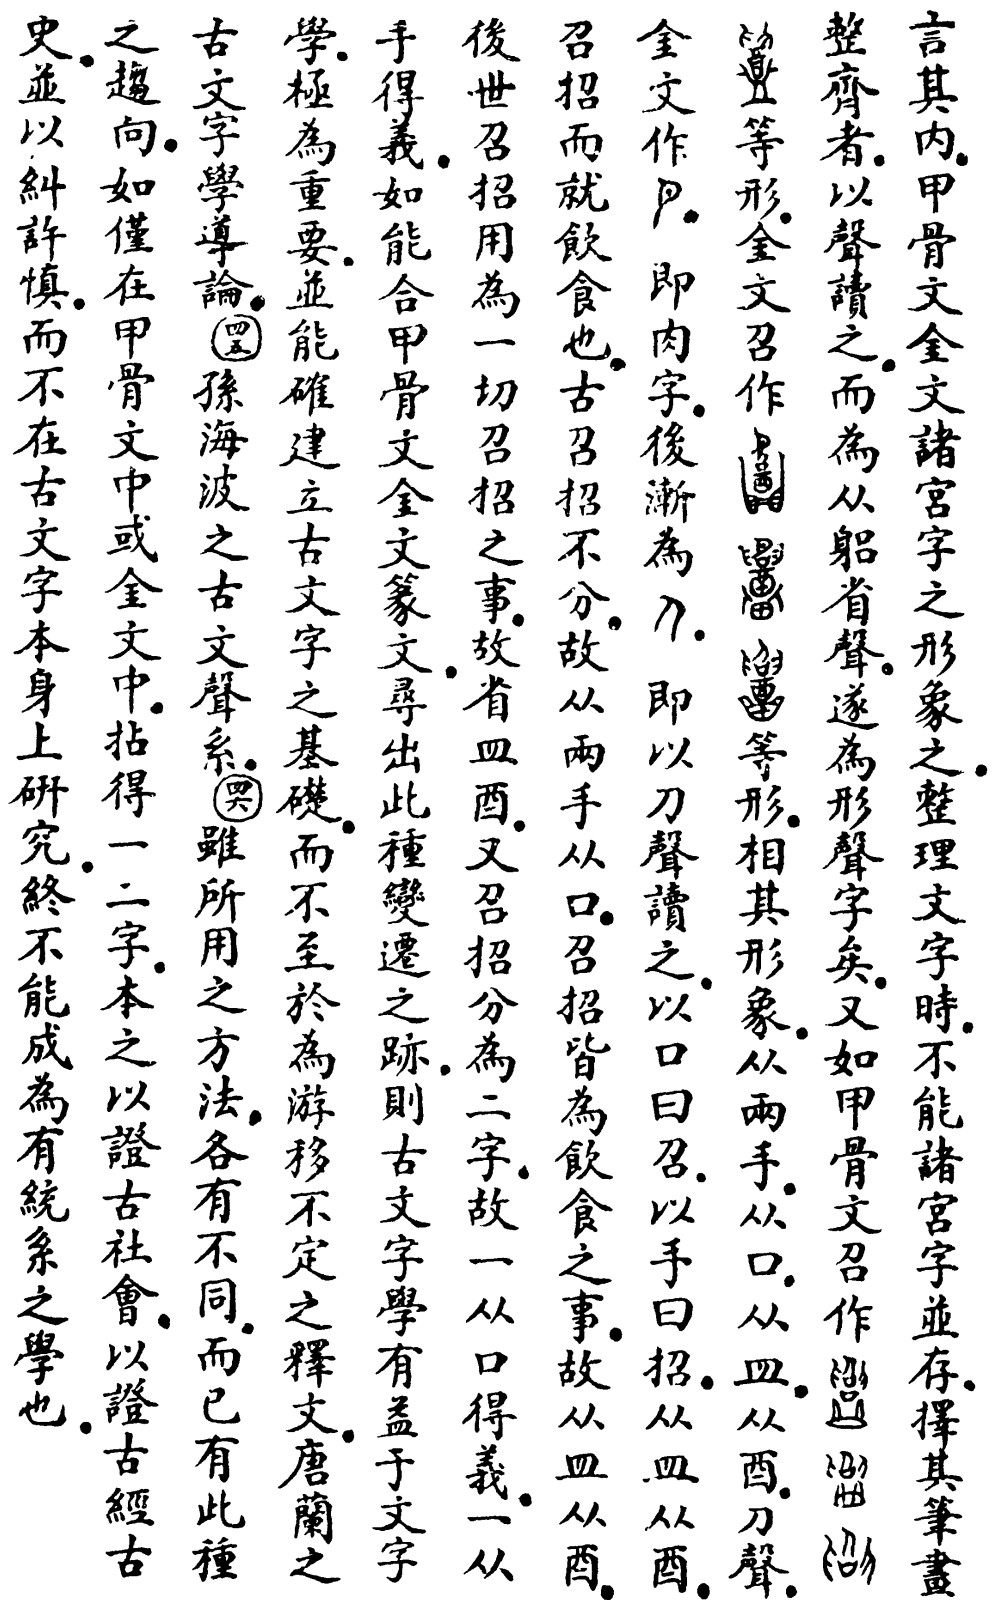 言其内。甲骨文金文諸宮字之形象之。整理文字時。不能諸宮字並存。擇其筆畫
整齊者。以聲讀之。而為从躳省聲。遂為形聲字矣。又如甲骨文召作
等形。金文召作 等形。相其形象。从兩手。从口。从皿。从酉。刀聲。
金文作 。即肉字。後漸為 。即以刀聲讀之。以口曰召。以手曰招。从皿从酉。
召招而就飲食也。古召招不分。故从兩手从口。召招皆為飲食之事。故从皿从酉。
後世召招用為一切召招之事。故省皿酉。又召招分為二字。故一从口得義。一从
手得義。如能合甲骨文金文篆文。尋出此種變遷之跡。則古文字學有益于文字
學。極為重要。並能確建立古文字之基礎。而不至於為游移不定之釋文。唐蘭之
古文字學導論。㊺孫海波之古文聲系。㊻雖所用之方法。各有不同。而已有此種
之趨向。如僅在甲骨文中或金文中。拈得一二字。本之以證古社會。以證古經古
史。並以糾許慎。而不在古文字本身上研究。終不能成為有統系之學也。